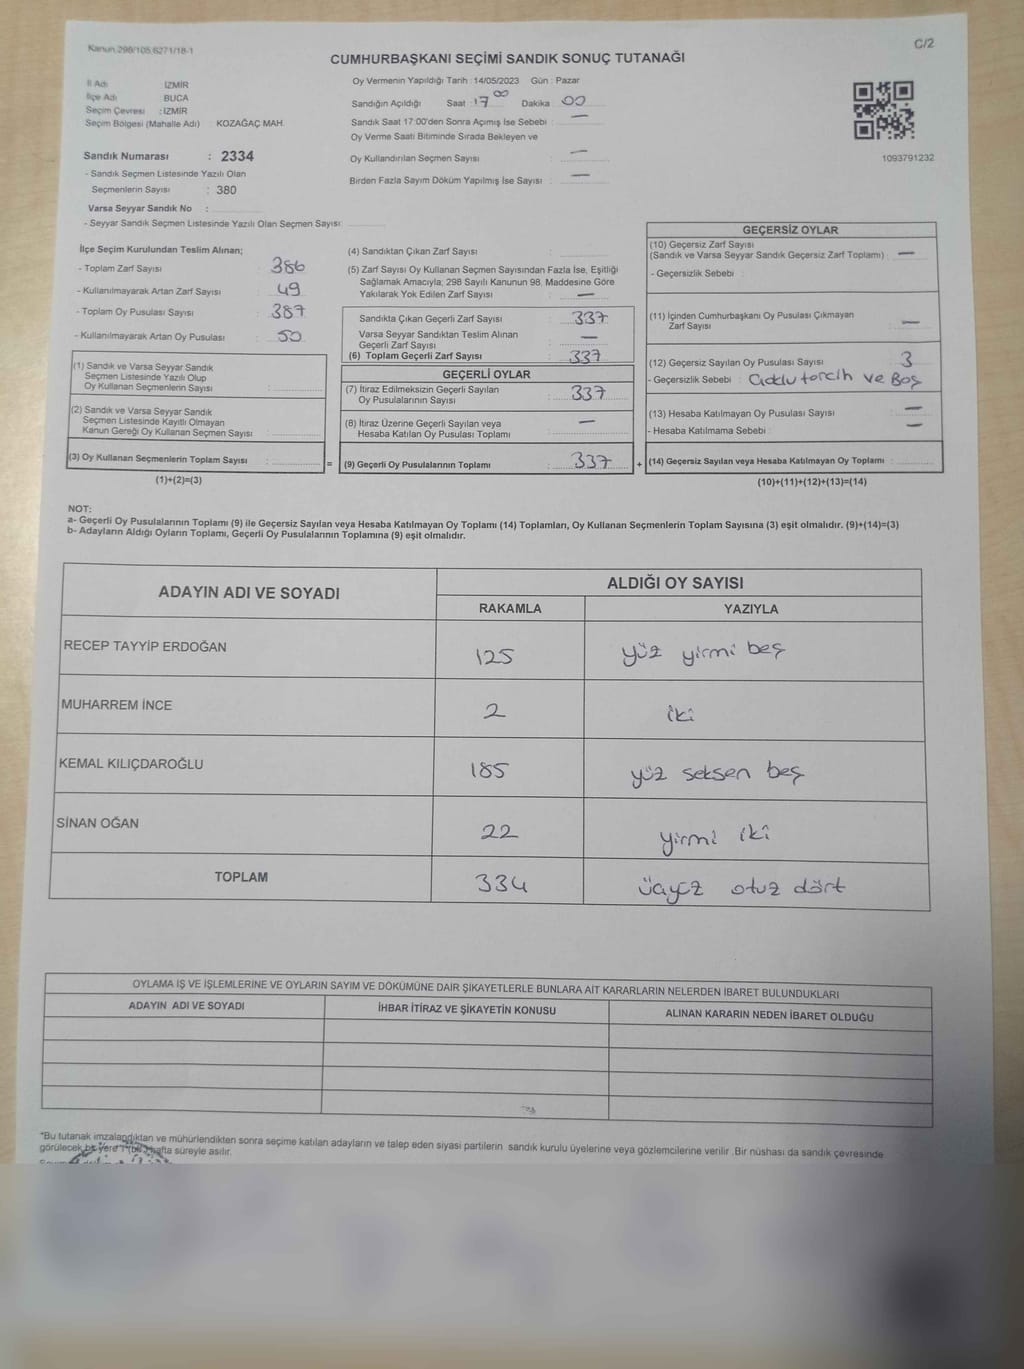 Kanun 298/105 6271/18-1
C/2
CUMHURBAŞKANI SEÇİMİ SANDIK SONUÇ TUTANAĞI
İl Adı İZMİR
İlçe Adı BUCA
Seçim Çevresi : İZMİR
Seçim Bölgesi (Mahalle Adı) : KOZAĞAÇ MAH.
Sandık Numarası : 2334
- Sandık Seçmen Listesinde Yazılı Olan
Seçmenlerin Sayısı : 380
Varsa Seyyar Sandık No :
- Seyyar Sandık Seçmen Listesinde Yazılı Olan Seçmen Sayısı:
Oy Vermenin Yapıldığı Tarih : 14/05/2023 Gün : Pazar
Sandığın Açıldığı Saat : 17 00 Dakika : 00
Sandık Saat 17:00'den Sonra Açımış İse Sebebi : —
Oy Verme Saati Bitiminde Sırada Bekleyen ve
Oy Kullandırılan Seçmen Sayısı : —
Birden Fazla Sayım Döküm Yapılmış İse Sayısı : —
1093791232
İlçe Seçim Kurulundan Teslim Alınan;
- Toplam Zarf Sayısı : 386
- Kullanılmayarak Artan Zarf Sayısı : 49
- Toplam Oy Pusulası Sayısı : 387
- Kullanılmayarak Artan Oy Pusulası : 50
(1) Sandık ve Varsa Seyyar Sandık
Seçmen Listesinde Yazılı Olup
Oy Kullanan Seçmenlerin Sayısı :
(2) Sandık ve Varsa Seyyar Sandık
Seçmen Listesinde Kayıtlı Olmayan
Kanun Gereği Oy Kullanan Seçmen Sayısı :
(3) Oy Kullanan Seçmenlerin Toplam Sayısı :
(1)+(2)=(3)
(4) Sandıktan Çıkan Zarf Sayısı :
(5) Zarf Sayısı Oy Kullanan Seçmen Sayısından Fazla İse, Eşitliği
Sağlamak Amacıyla; 298 Sayılı Kanunun 98. Maddesine Göre
Yakılarak Yok Edilen Zarf Sayısı : —
Sandıkta Çıkan Geçerli Zarf Sayısı : 337
Varsa Seyyar Sandıktan Teslim Alınan
Geçerli Zarf Sayısı : —
(6) Toplam Geçerli Zarf Sayısı : 337
GEÇERLİ OYLAR
(7) İtiraz Edilmeksizin Geçerli Sayılan
Oy Pusulalarının Sayısı : 337
(8) İtiraz Üzerine Geçerli Sayılan veya
Hesaba Katılan Oy Pusulası Toplamı : —
= (9) Geçerli Oy Pusulalarının Toplamı : 337 +
GEÇERSİZ OYLAR
(10) Geçersiz Zarf Sayısı
(Sandık ve Varsa Seyyar Sandık Geçersiz Zarf Toplamı) : —
- Geçersizlik Sebebi :
(11) İçinden Cumhurbaşkanı Oy Pusulası Çıkmayan
Zarf Sayısı : —
(12) Geçersiz Sayılan Oy Pusulası Sayısı : 3
- Geçersizlik Sebebi : tercih ve Boş
(13) Hesaba Katılmayan Oy Pusulası Sayısı : —
- Hesaba Katılmama Sebebi : —
(14) Geçersiz Sayılan veya Hesaba Katılmayan Oy Toplamı :
(10)+(11)+(12)+(13)=(14)
NOT:
a- Geçerli Oy Pusulalarının Toplamı (9) ile Geçersiz Sayılan veya Hesaba Katılmayan Oy Toplamı (14) Toplamları, Oy Kullanan Seçmenlerin Toplam Sayısına (3) eşit olmalıdır. (9)+(14)=(3)
b- Adayların Aldığı Oyların Toplamı, Geçerli Oy Pusulalarının Toplamına (9) eşit olmalıdır.
ADAYIN ADI VE SOYADI
ALDIĞI OY SAYISI
RAKAMLA YAZIYLA
RECEP TAYYİP ERDOĞAN 125 yüz yirmi beş
MUHARREM İNCE 2 iki
KEMAL KILIÇDAROĞLU 185 yüz seksen beş
SİNAN OĞAN 22 yirmi iki
TOPLAM 334 üçyüz otuz dört
OYLAMA İŞ VE İŞLEMLERİNE VE OYLARIN SAYIM VE DÖKÜMÜNE DAİR ŞİKAYETLERLE BUNLARA AİT KARARLARIN NELERDEN İBARET BULUNDUKLARI
ADAYIN ADI VE SOYADI İHBAR İTİRAZ VE ŞİKAYETİN KONUSU ALINAN KARARIN NEDEN İBARET OLDUĞU
*Bu tutanak imzalandıktan ve mühürlendikten sonra seçime katılan adayların ve talep eden siyasi partilerin sandık kurulu üyelerine veya gözlemcilerine verilir .Bir nüshası da sandık çevresinde
görülecek bir yere 1 (bir) hafta süreyle asılır.